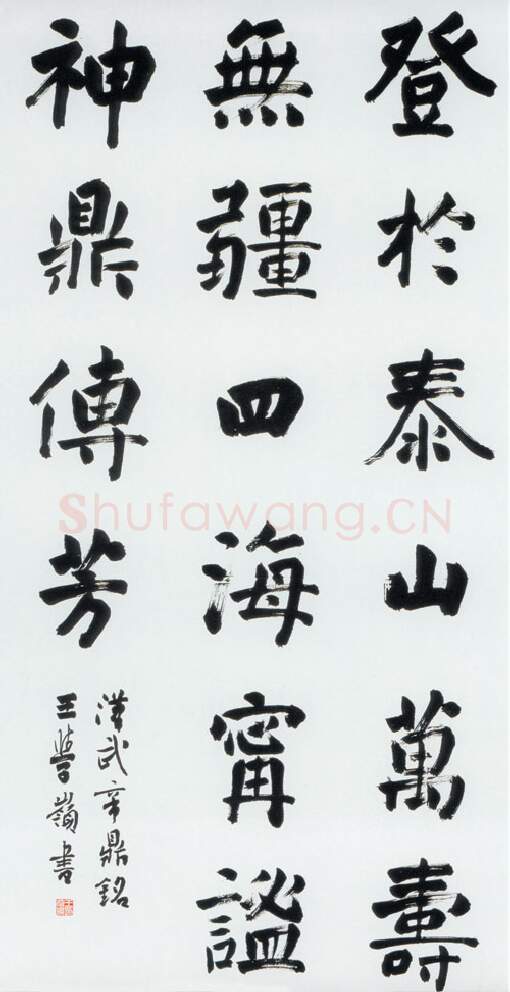 登於泰山萬壽
無疆四海甯謐
神鼎傳芳
漢武帝鼎銘
王學嶺書
Shufawang.CN